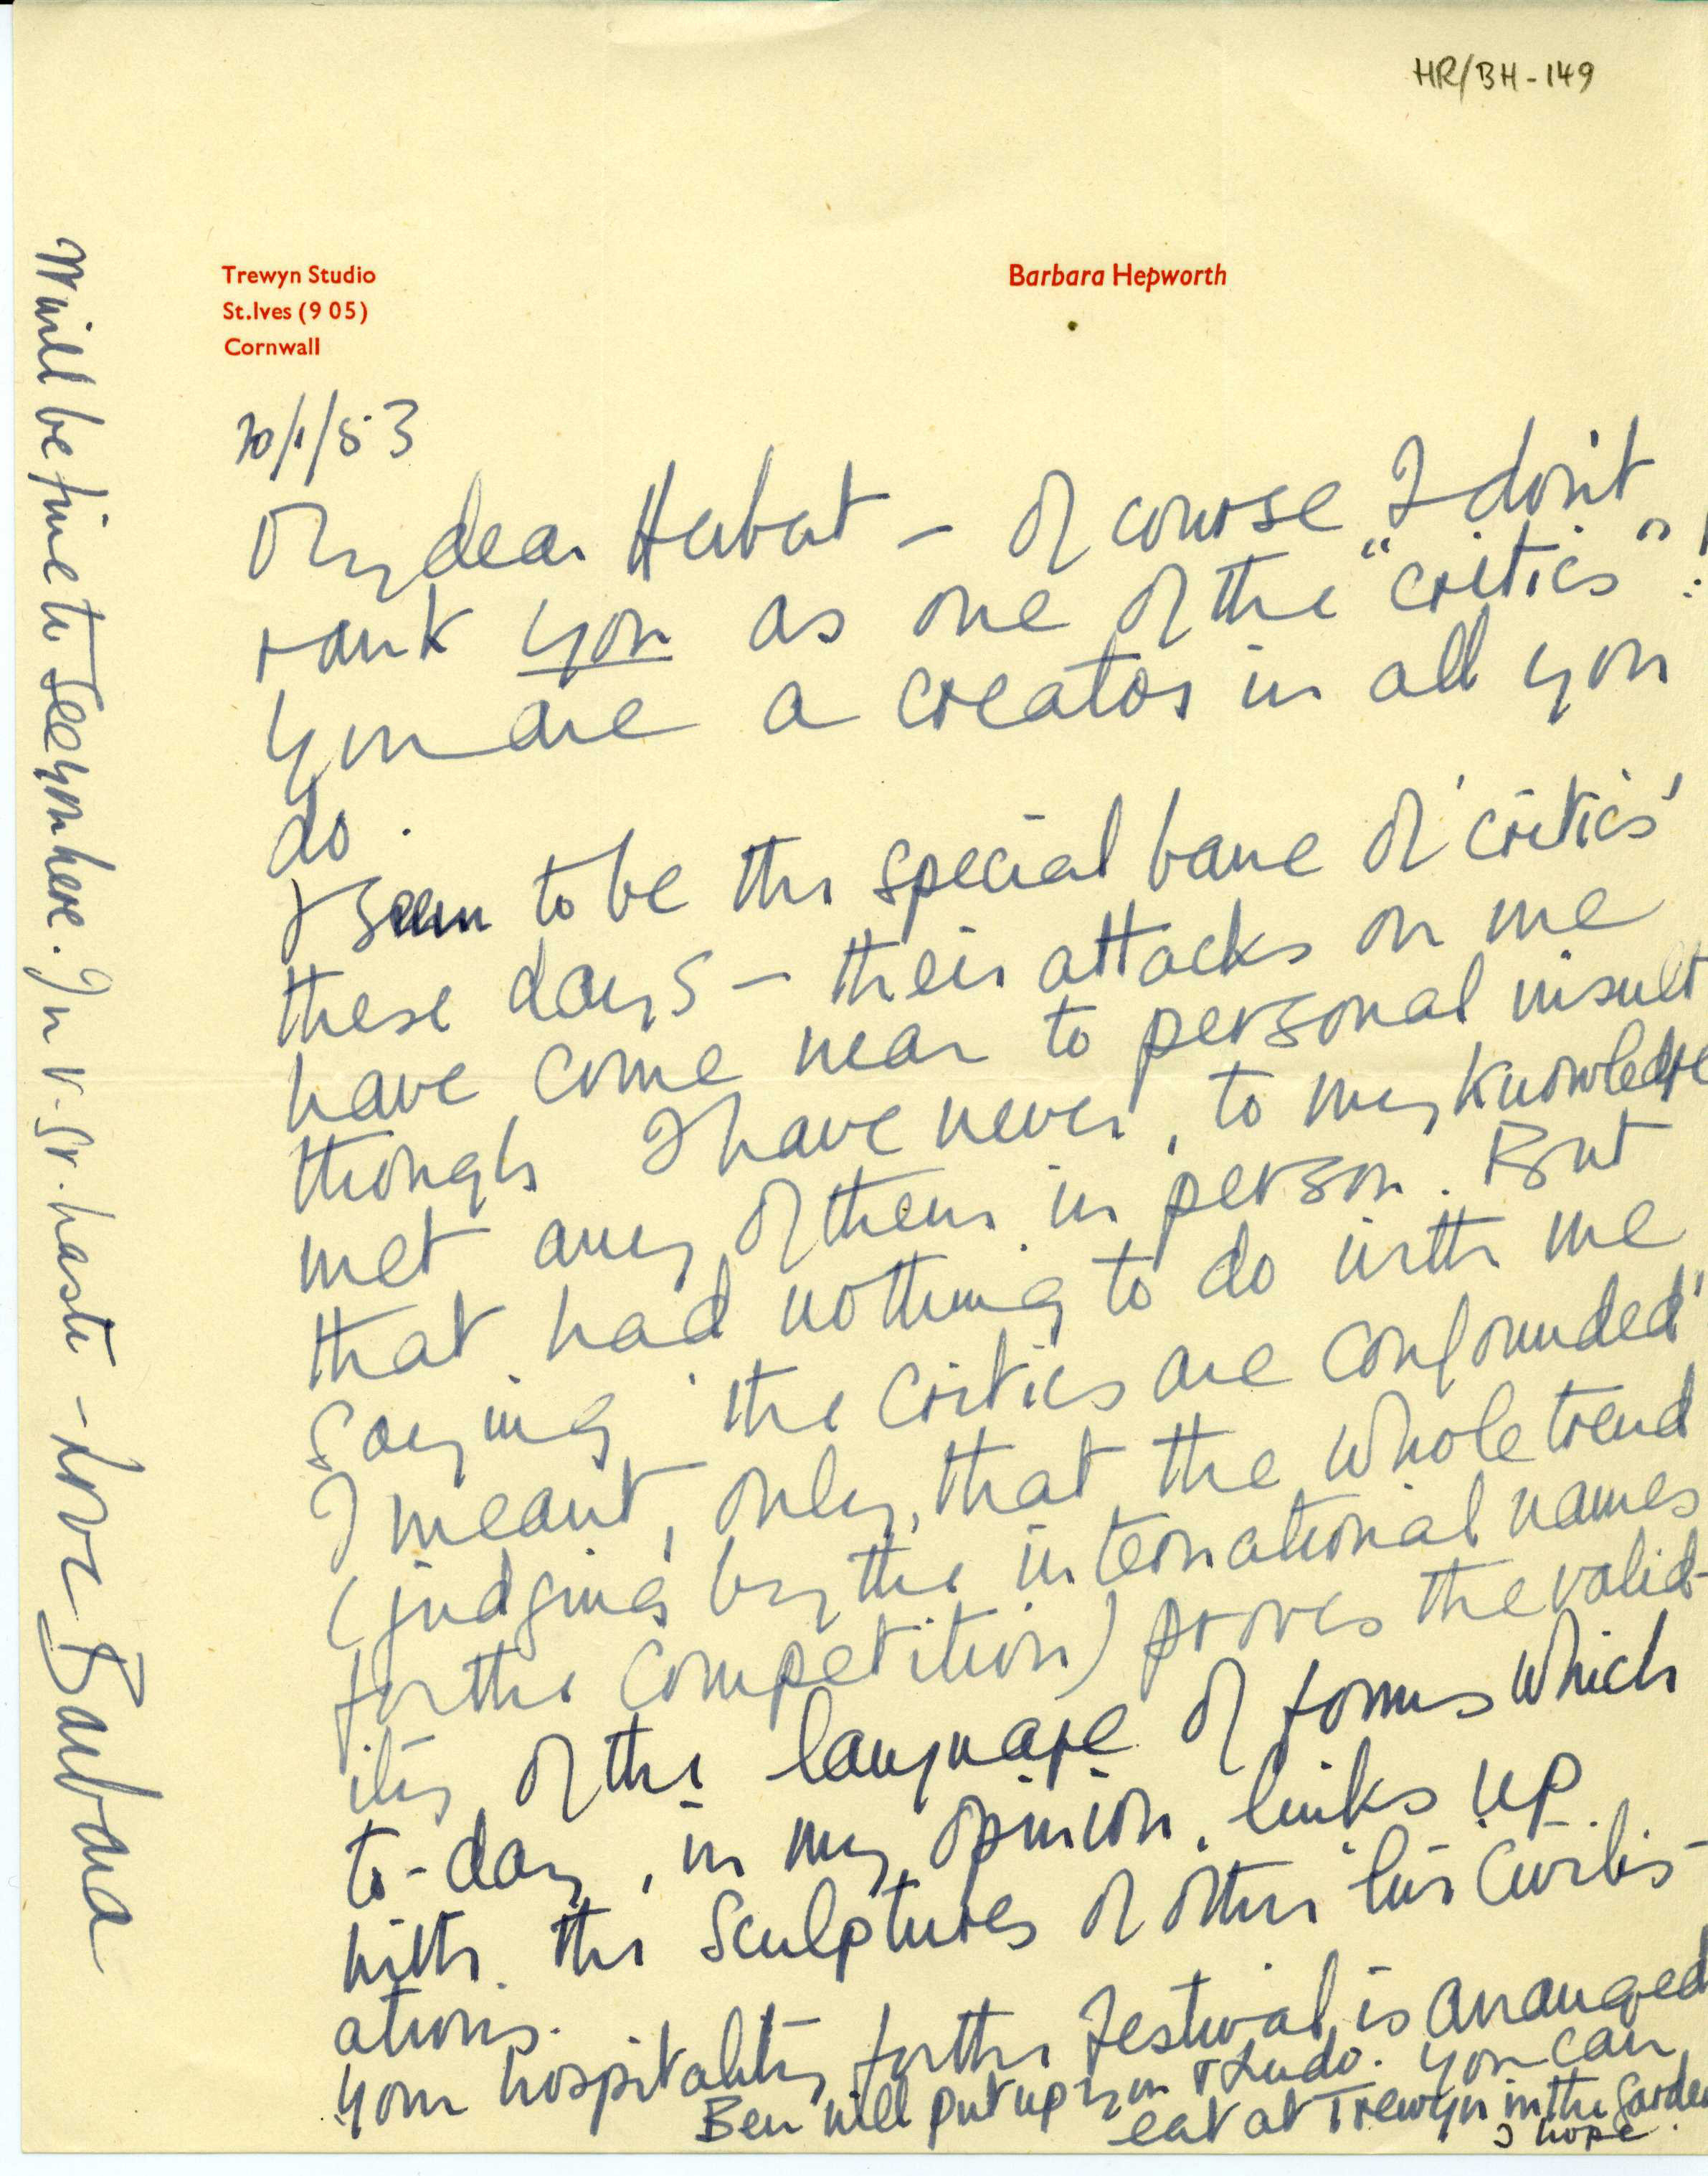 HR/BH-149
Trewyn Studio
St.Ives (9 05)
Cornwall
Barbara Hepworth
/1/53
My dear Herbert – Of course I don't
rank you as one of the "critics"!
you are a creator in all you
do.
I seem to be the special bane of 'critics'
these days – their attacks on me
have come near to personal insult
though I have never, to my knowledge
met any of them in person. But
that had nothing to do with me
saying 'the critics are confounded'
I meant, only, that the whole trend
(judging by the international names
for the competition) proves the valid-
ity of the language of forms which
to-day, in my opinion, links up
with the sculptures of other civilis-
ations.
Your hospitality for the Festival is arranged
Ben will put up you & Ludo. You can
eat at Trewyn in the Garden
I hope.
It will be fine to see you here. In v. gr. haste – love Barbara